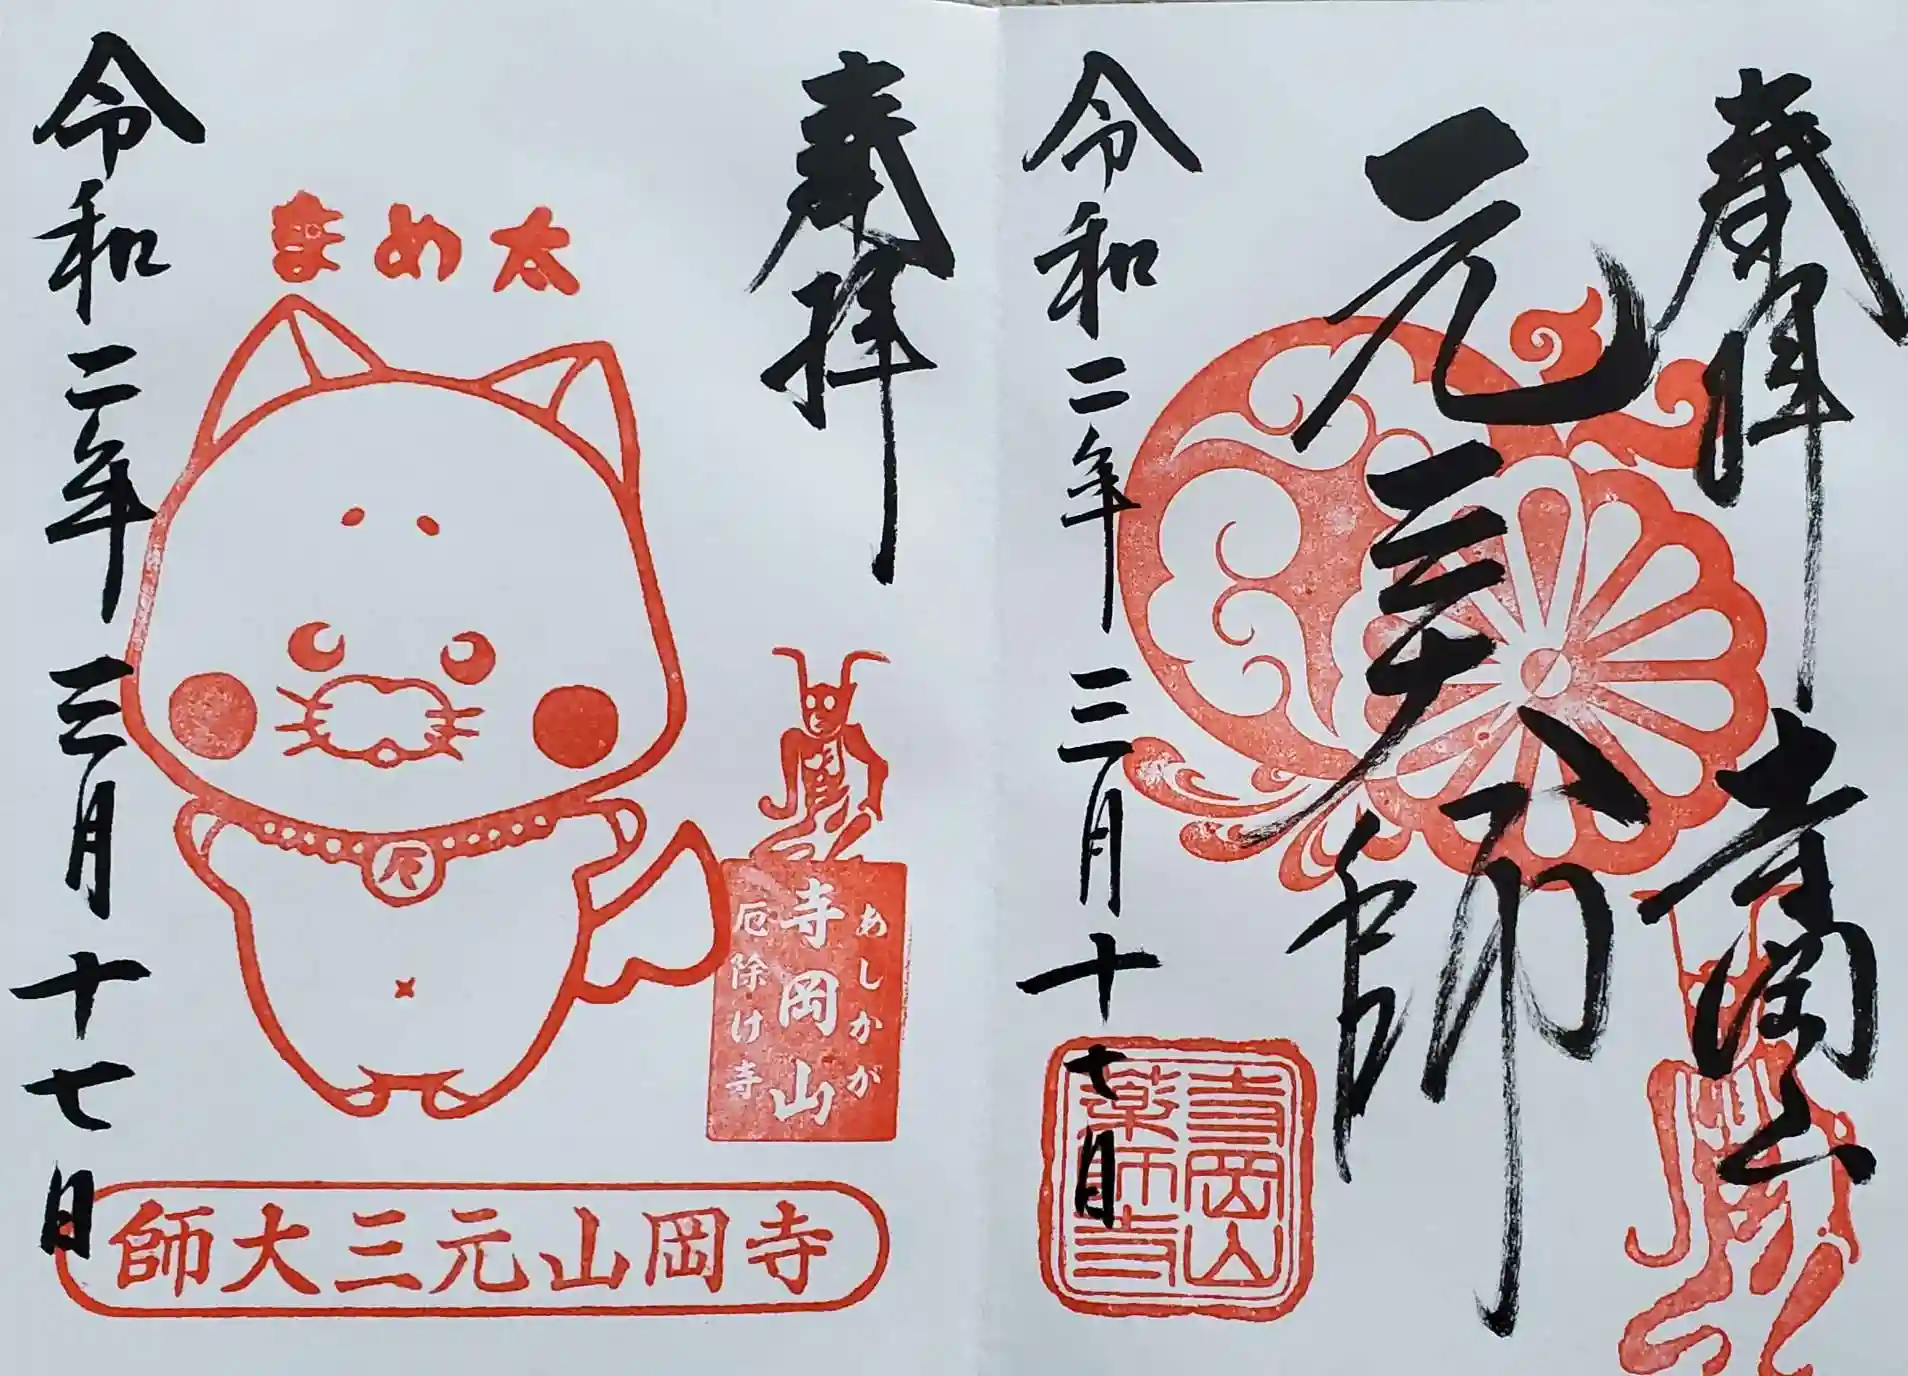 奉拝
寺岡山
元三大師
令和二年三月十七日
寺岡山
薬師寺
奉拝
まめ太
厄
あしかが
寺岡山
厄除け寺
師大三元山岡寺
令和二年三月十七日